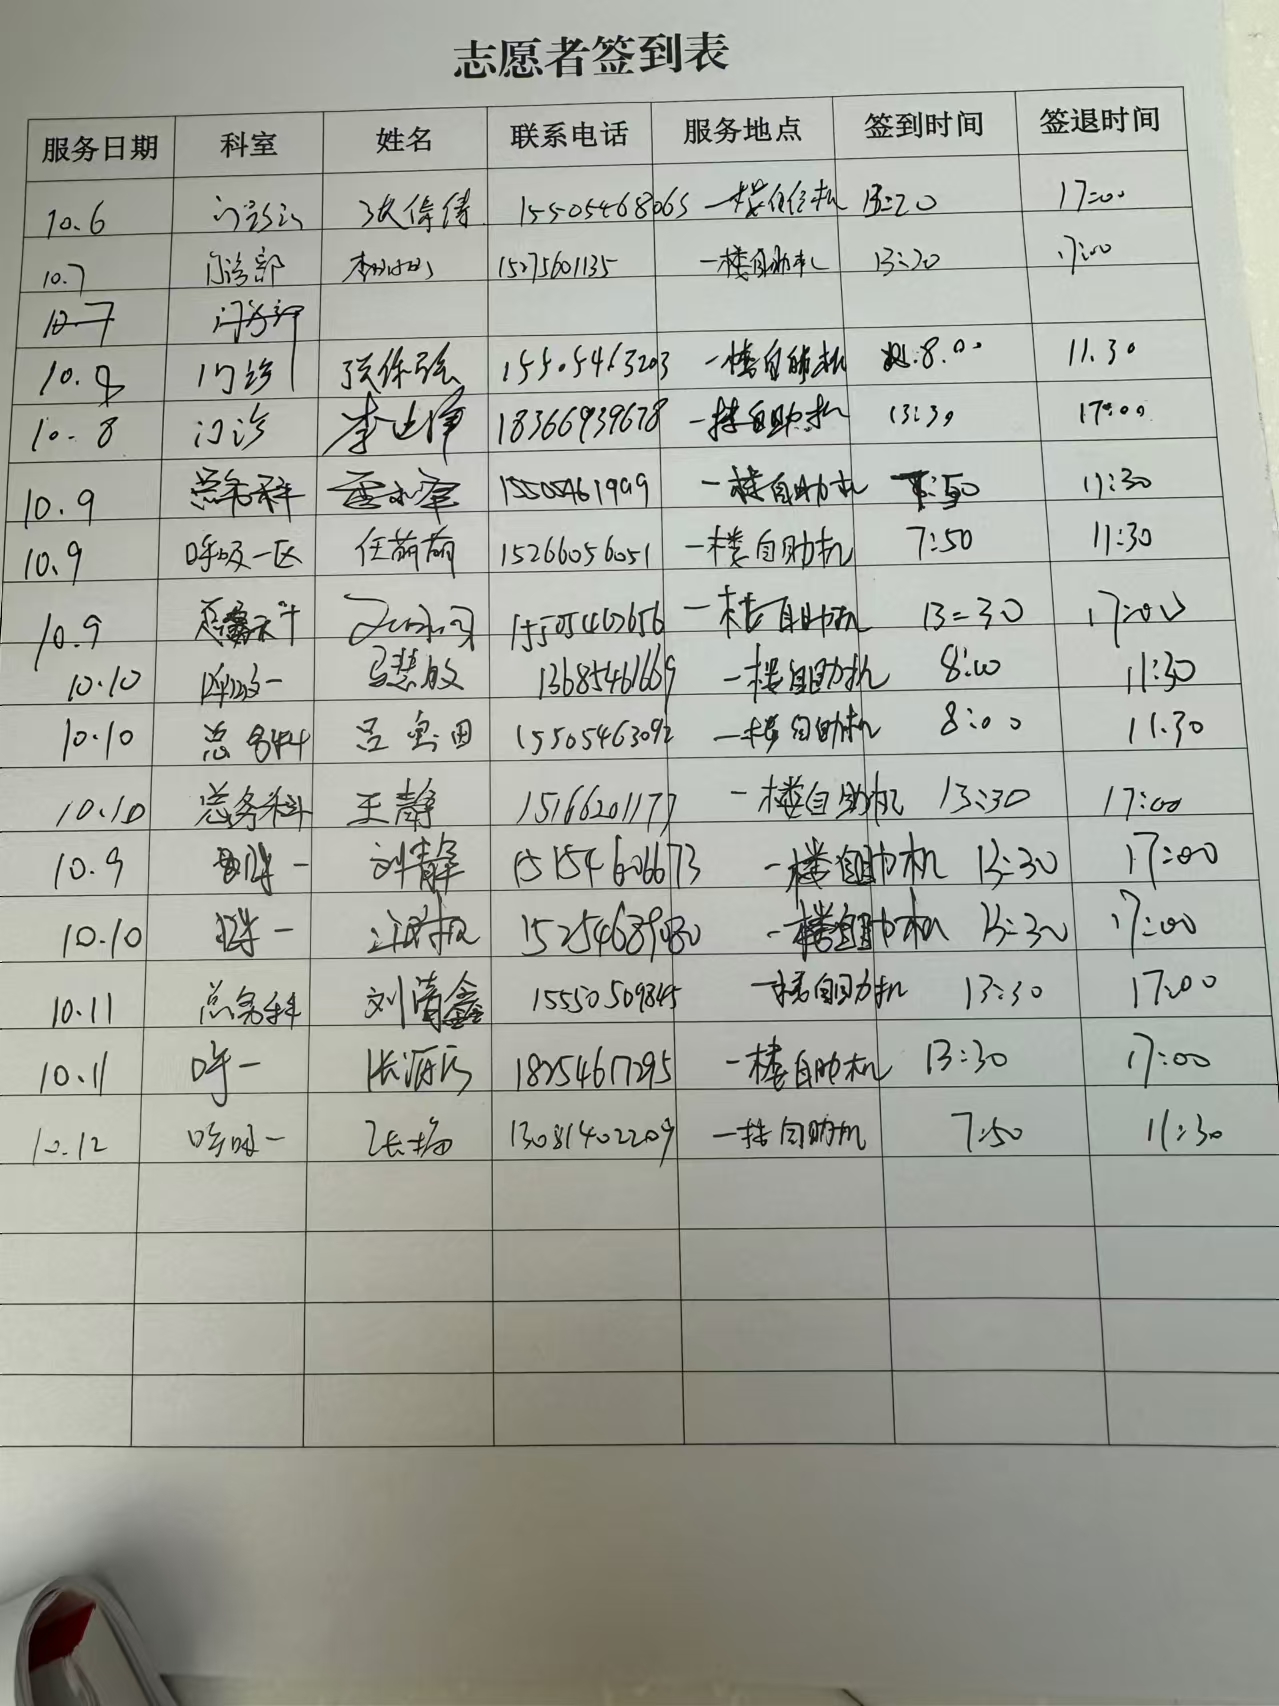 志愿者签到表
服务日期 科室 姓名 联系电话 服务地点 签到时间 签退时间
10.6 15505468065 一楼 13:20 17:00
10.7 门诊部 15275601135 一楼自助机 13:20 17:00
10.7 门诊部
10.8 门诊 15505463203 一楼自助机 8.00 11.30
10.8 门诊 李 18366939678 一楼自助机 13:30 17:00
10.9 总务科 15505461999 一楼自助机 7:50 11:30
10.9 呼吸一区 任萌萌 15266056051 一楼自助机 7:50 11:30
10.9 15505462656 一楼自助机 13:30 17:00
10.10 呼吸一 马慧敏 13685461669 一楼自助机 8:00 11:30
10.10 总务科 吕 15505463092 一楼自助机 8:00 11.30
10.10 总务科 王静 15166201177 一楼自助机 13:30 17:00
10.9 一 刘静 15154606673 一楼自助机 13:30 17:00
10.10 一 15254689080 一楼自助机 13:30 17:00
10.11 总务科 刘 鑫 15550509845 一楼自助机 13:30 17:00
10.11 呼一 张 18254617295 一楼自助机 13:30 17:00
10.12 呼吸一 张梅 13081402209 一楼自助机 7:50 11:30